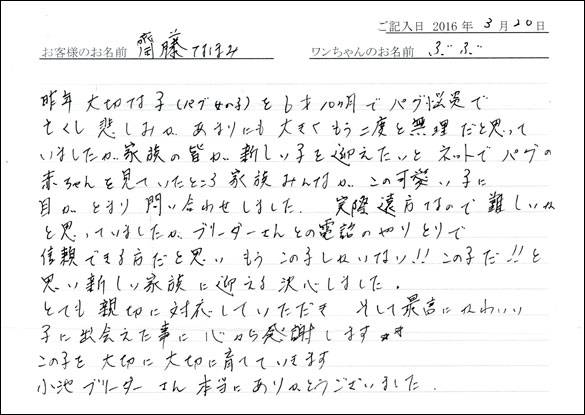 ご記入日 2016 年 3 月 20 日
お客様のお名前 齋藤なおみ ワンちゃんのお名前 ぶぶ
昨年 大切な子(パグ女の子)を6才10ヶ月でパグ脳炎で
亡くし 悲しみが あまりにも 大きく もう二度と無理だと思って
いましたが、家族の皆が 新しい子を迎えたいと ネットで パグの
赤ちゃんを見ていたところ 家族みんなが この可愛い子に
目が とまり 問い合わせしました. 実際遠方なので 難しいね
と思っていましたが、ブリーダーさんとの電話のやりとりで
信頼できる方だと思い もう この子しかいない!! この子だ!!と
思い新しい家族に迎える決心しました.
とても 親切に 対応していただき そして最高に かわいい
子に出会えた事に 心から感謝します
この子を 大切に 大切に育てていきます
小池 ブリーダーさん 本当に ありがとうございました.